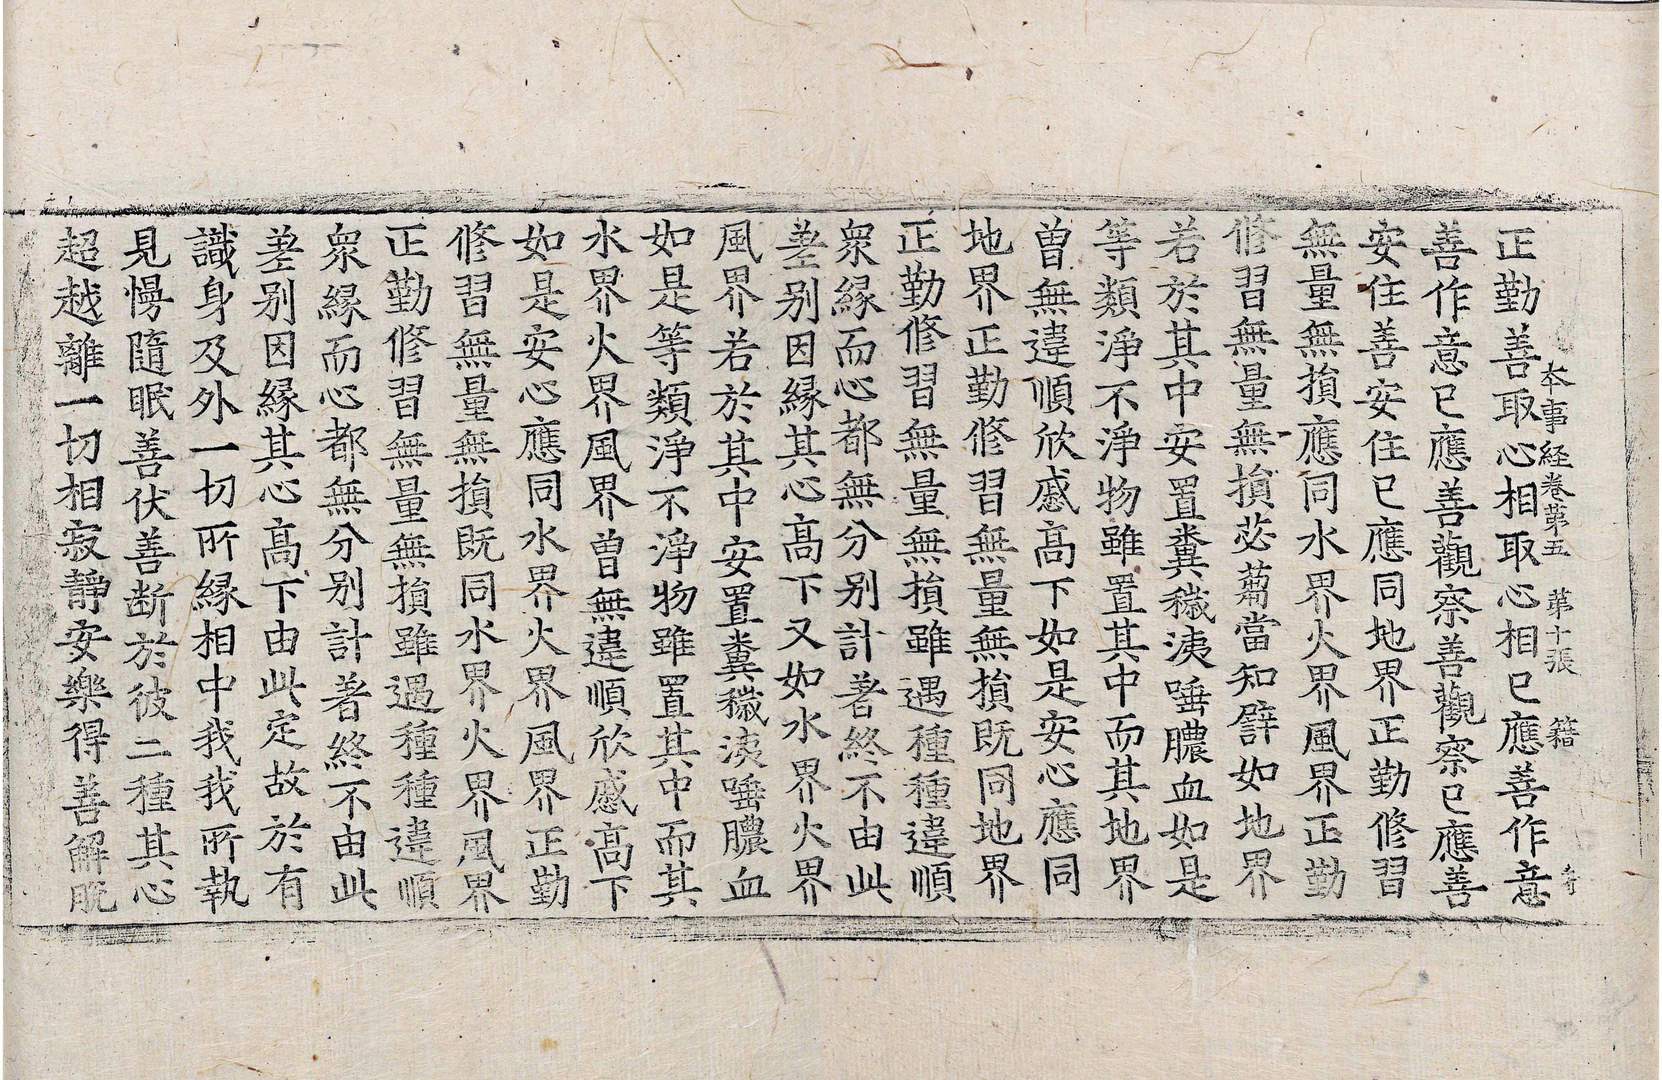 本事経卷第五 第十張 籍
正勤善取心相取心相已應善作意
善作意已應善觀察善觀察已應善
安住善安住已應同地界正勤修習
無量無損應同水界火界風界正勤
修習無量無損苾蒭當知譬如地界
若於其中安置糞穢洟唾膿血如是
等類淨不淨物雖置其中而其地界
曽無違順欣慼高下如是安心應同
地界正勤修習無量無損既同地界
正勤修習無量無損雖遇種種違順
衆緣而心都無分别計著終不由此
差别因緣其心高下又如水界火界
風界若於其中安置糞穢洟唾膿血
如是等類淨不淨物雖置其中而其
水界火界風界曽無違順欣慼高下
如是安心應同水界火界風界正勤
修習無量無損既同水界火界風界
正勤修習無量無損雖遇種種違順
衆緣而心都無分别計著終不由此
差别因緣其心高下由此定故於有
識身及外一切所緣相中我我所執
見慢隨眠善伏善断於彼二種其心
超越離一切相寂靜安樂得善解脫